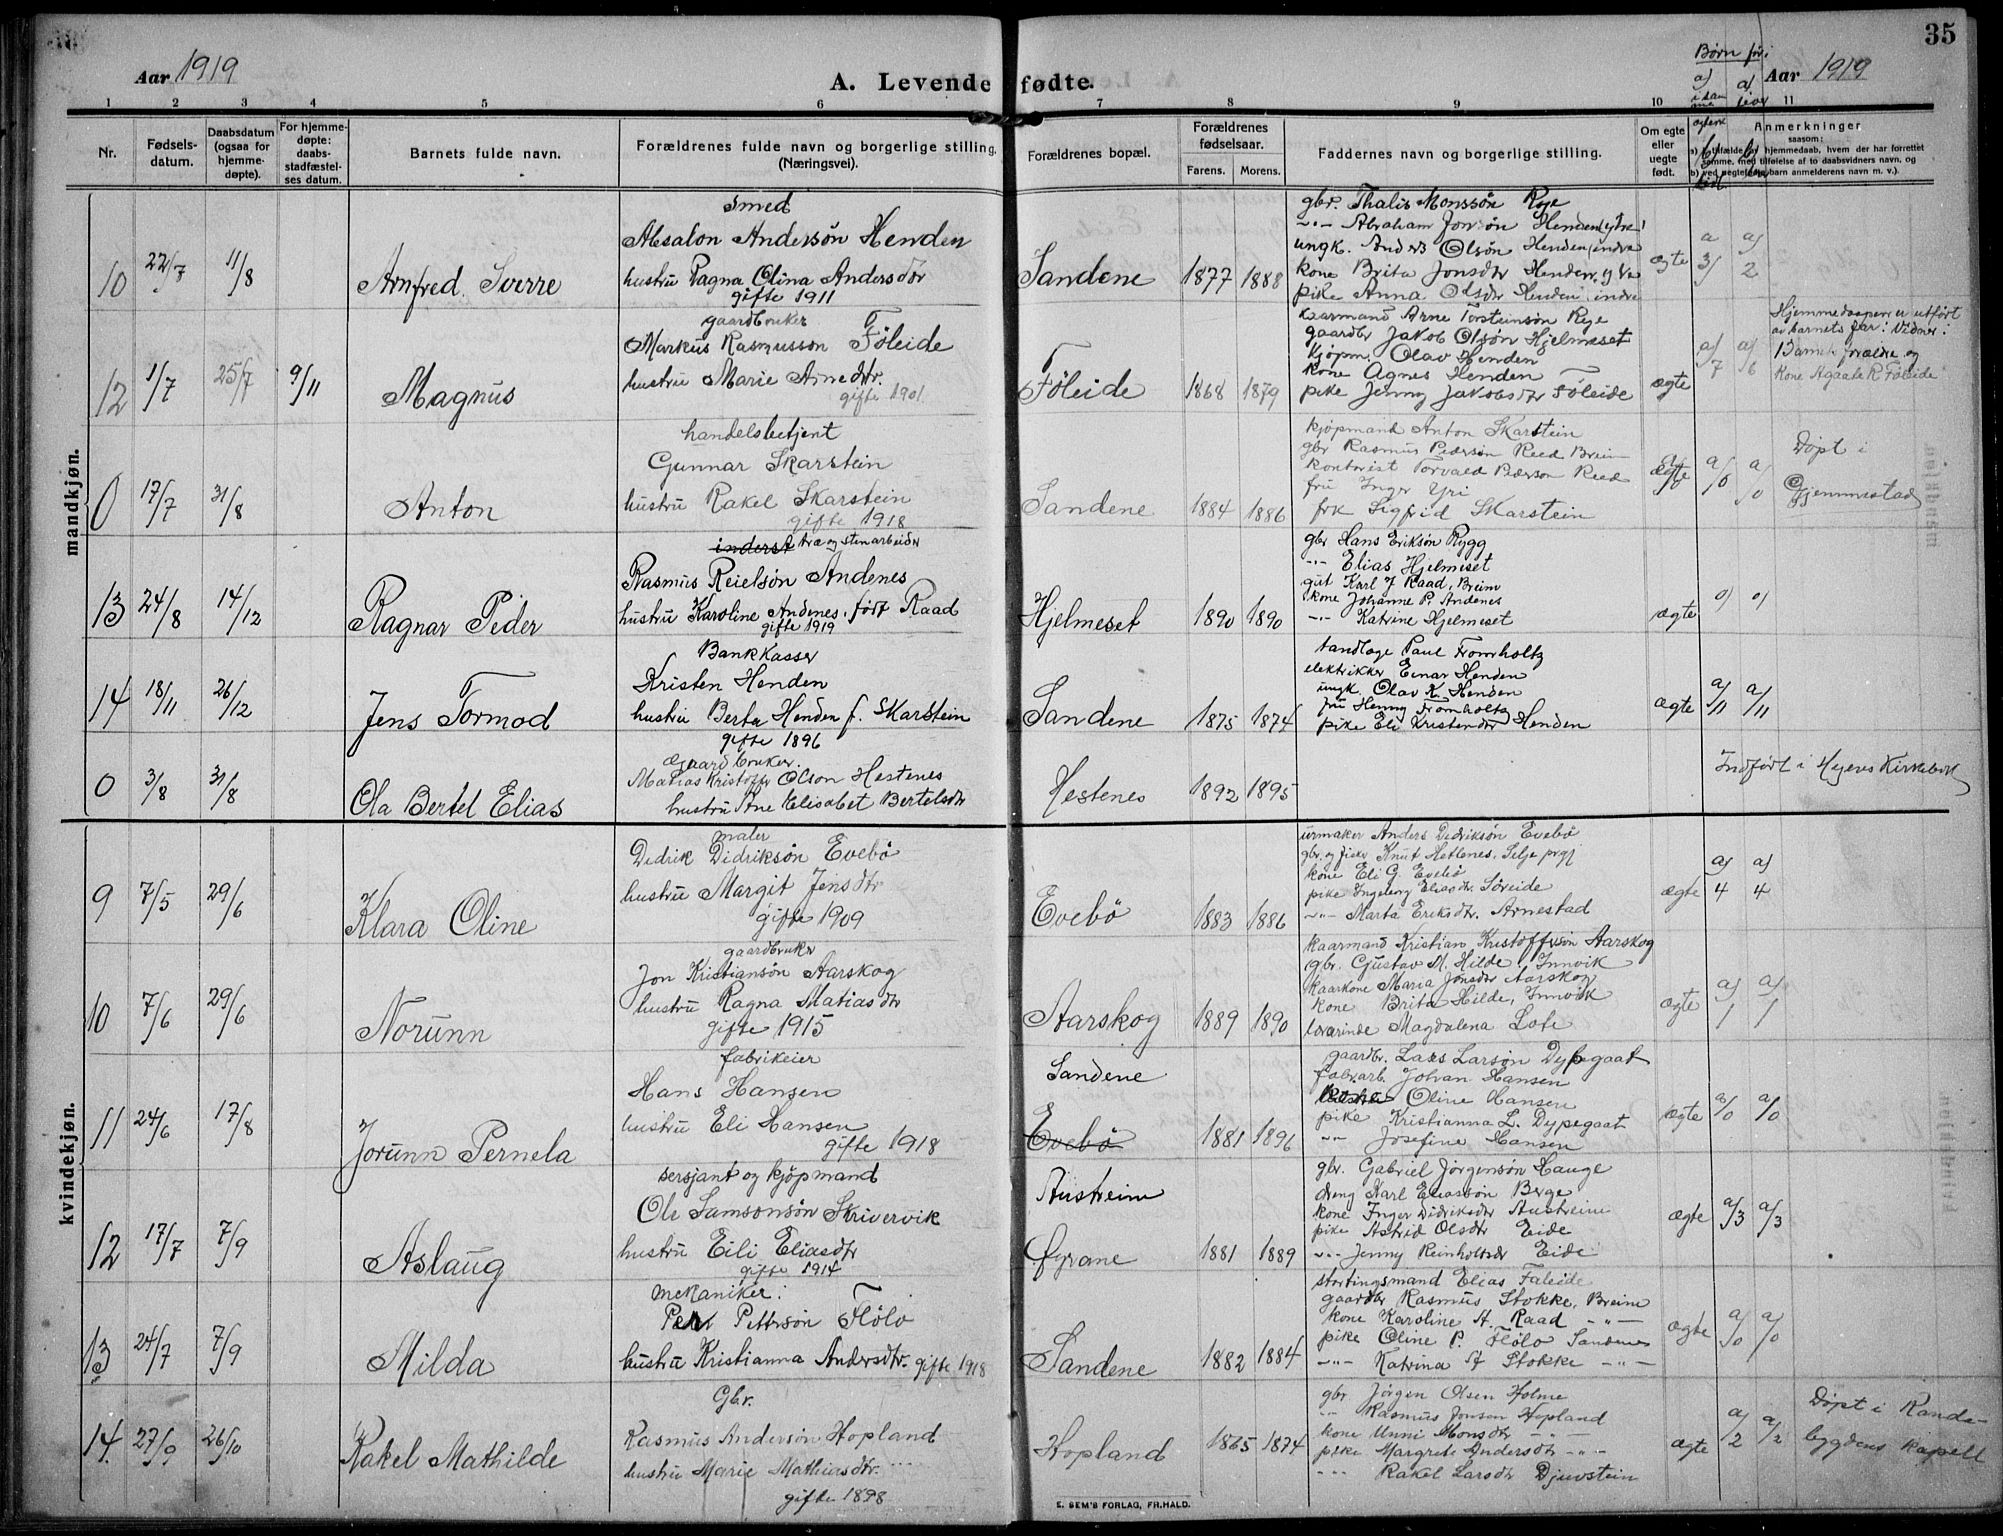 35
Aar 1919
A. Levende fødte.
Børn før:
Aar 1919
1 2 3 4 5 6 7 8 9 10 11
Nr.
Fødsels-
datum.
Daabsdatum
(ogsaa for
hjemme-
døpte).
For hjemme-
døpte:
daabs-
stadfæstel-
ses datum.
Barnets fulde navn.
Forældrenes fulde navn og borgerlige stilling.
(Næringsvei).
Forældrenes bopæl.
Forældrenes
fødselsaar.
Farens. Morens.
Faddernes navn og borgerlige stilling.
Om egte
eller
uegte
født.
Anmerkninger
saasom:
mandkjøn.
10 22/7 11/8 Arnfred Sverre
Smed
Absalon Andersøn Henden
hustru Ragna Olina Andersdtr
gifte 1911
Sandene 1877 1888
gbr. Thalis Monssøn Rye
-"- Abraham Jonsøn Henden (ytre)
ungk. Anders Olsøn Henden (indre
kone Brita Jonsdtr Henden, ytre
pike Anna Olsdtr Henden indre
ægte a/3 a/2
12 1/7 25/7 9/11 Magnus
gaardbruker
Markus Rasmusson Føleide
hustru Marie Arnedtr.
gifte 1901
Føleide 1868 1879
kaarmand Arne Torsteinsøn Rye
gaardbr Jakob Olsøn Hjelmeset
kjøpm. Olav Henden
kone Agnes Henden
pike Jenny Jakobsdtr Føleide
ægte a/7 a/6
Hjemmedaapen er utført
av barnets far: Vidner:
Barnets forældre og
kone Agaate R. Føleide
0 17/7 31/8 Anton
handelsbetjent
Gunnar Skarstein
hustru Rakel Skarstein
gifte 1918
Sandene 1884 1886
kjøpmand Anton Skarstein
gbr Rasmus Pedersøn Reed Breim
kontorist Torvald Pederson Reed
fru Inger Yri
frk Sigfrid Skarstein
ægte a/0 a/0
Døpt i
Gjemmestad
13 24/8 14/12 Ragnar Peder
inderst træ og stenarbeider
Rasmus Reielsøn Andenes
hustru Karoline Andenes, født Raad
gifte 1919
Hjelmeset 1890 1890
gbr Hans Eriksøn Rygg
-"- Elias Hjelmeset
gut Karl J Raad, Breim
kone Johanne P. Andenes
-"- Katrine Hjelmeset
ægte a/ a/
14 18/11 26/12 Jens Tormod
Bankkasser
Kristen Henden
hustru Berta Henden f. Skarstein
gifte 1896
Sandene 1875 1874
tandlæge Paul Fromholtz
elektrikker Einar Henden
ungk. Olav K. Henden
fru Henny Fromholtz
pike Eli Kristensdtr Henden
ægte a/11 a/11
0 3/8 31/8 Ola Bertel Elias
Gaardbruker.
Matias Kristoffer Olson Hestenes
hustru Ane Elisabet Bertelsdtr
Hestenes 1892 1895
Indført i Hyens Kirkebok
kvindekjøn.
9 7/5 29/6 Klara Oline
maler
Didrik Didriksøn Evebø
hustru Margit Jensdtr
gifte 1909
Evebø 1883 1886
urmaker Anders Didriksøn Evebø
gbr. og fisker Knut Hetlenes, Selje prgj
kone Eli G. Evebø
pike Ingeborg Eliasdtr. Søreide
-"- Marta Eriksdtr. Arnestad
ægte a/4 a/4
10 7/6 29/6 Norunn
gaardbruker
Jon Kristiansøn Aarskog
hustru Ragna Matiasdtr
gifte 1915
Aarskog 1889 1890
kaarmand Kristian Kristoffersøn Aarskog
gbr. Gjustav M. Hilde, Innvik
kaarkone Maria Jonsdtr Aarskog
kone Brita Hilde, Innvik
lærarinde Magdalena Lote
ægte a/1 a/1
11 24/6 17/8 Jorunn Pernela
fabrikeier
Hans Hansen
hustru Eli Hansen
gifte 1918
Sandene
Evebø 1881 1896
gaardbr. Lars Larsøn Dypegaat
fabr.arb. Johan Hansen
Oline Hansen
pike Kristianna L. Dypegaat
-"- Josefine Hansen
ægte a/0 a/0
12 17/7 7/9 Aslaug
sersjant og kjøpmand
Ole Samsonsøn Skrivervik
hustru Eili Eliasdtr
gifte 1914
Austreim
Øyrane 1881 1889
gbr. Gabriel Jørgensøn Hauge
dreng Karl Eliassøn Berge
kone Inger Didriksdtr Austreim
pike Astrid Olsdtr Eide
-"- Jenny Reinholtsdtr Eide
ægte a/3 a/3
13 24/7 7/9 Milda
mekaniker:
Petter Pettersøn Flølo
hustru Kristianna Andersdtr. gifte 1918
Sandene 1882 1884
stortingsmand Elias Faleide
gaardbr Rasmus Stokke, Breim
kone Karoline A. Raad -"-
pike Oline P. Flølo Sandene
-"- Katrina A Stokke -"-
ægte a/0 a/0
14. 27/9 26/10 Rakel Mathilde
Gbr.
Rasmus Andersøn Hopland
hustru Marie Mathiasdtr.
gifte 1898
Hopland 1865 1874
gbr Jørgen Olsen Holme
-"- Rasmus Jonsen Hopland
kone Unni Monsdtr -"-
pike Margrete Andersdtr -"-
-"- Rakel Larsdtr Djuvstein
ægte a/2 a/2
Døpt i Randa-
bygdens kapell
E. SEM'S FORLAG, FR.HALD.